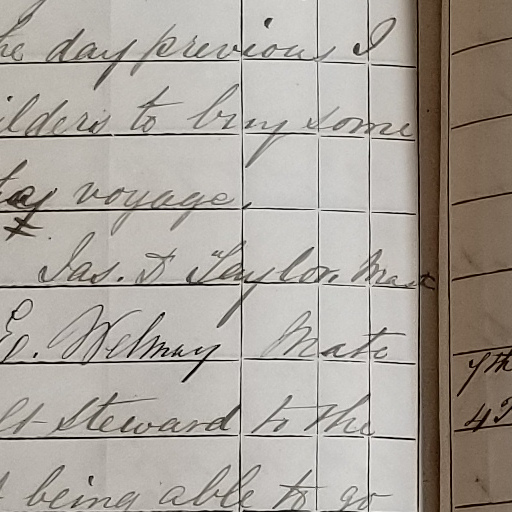 he day previous I
ilders to buy some
voyage.
Jas. T Taylor, Mast
Ed. Welmay Mate
lt Steward to the
t being able to go
7th
4